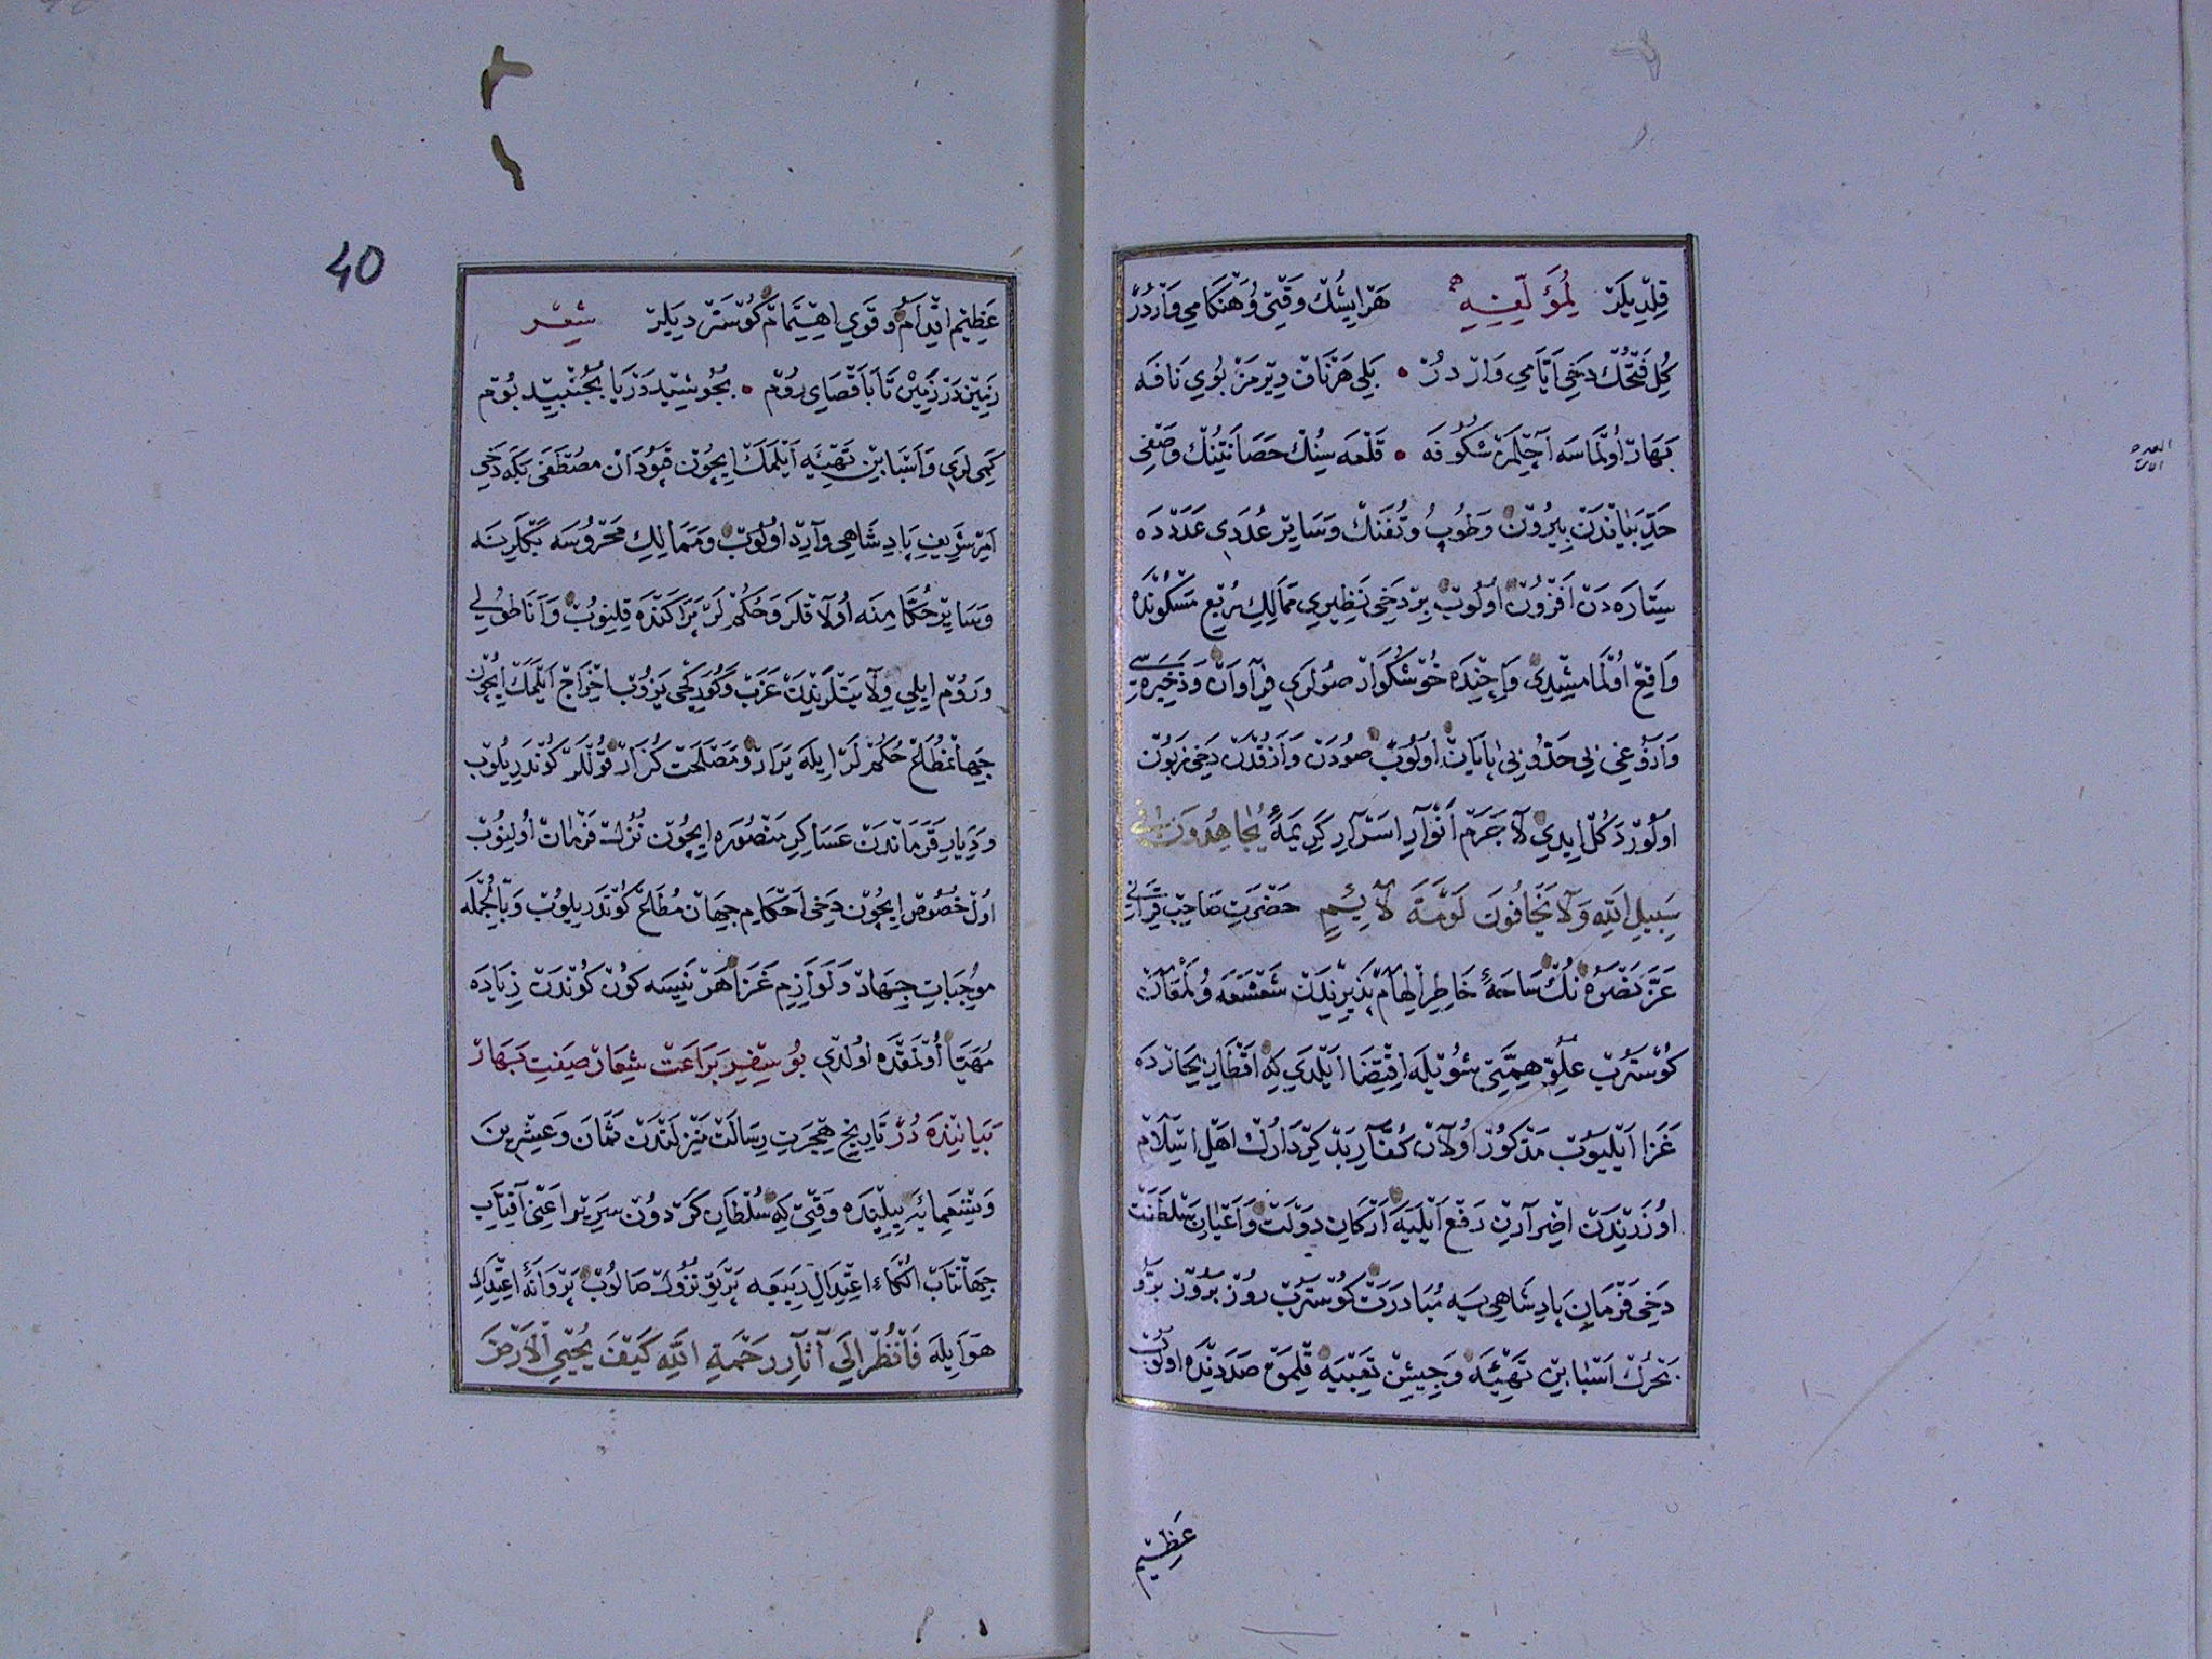 قلديلر لمؤلفه هر ايشك وقتى و هنكامى واردر
كل فتحك دخى اياامى وار در • بلى هر ناف ديرمز بوى نافه
بهار اولماسه آچلمز شكوفه • قلعه سنك حصانتينك وصفى
حد بياندن بيرون وطوپ و تفنك و ساير عددى عددده
ستاره دن افزون اولوب بر دخى نظيرى ممالك ربع مسكونده
واقع اولمامشيدى و ايچنده خوشكوار صولرى فراوان و ذخيره سى
وآذوغى بى حد و بى پايان اولوب صودن وآزقدن دخى زبون
اولور دكل ايدى لا جرم انوار اسرار كريمهٔ يجاهدون في
سبيل الله ولا يخافون لومة لائم حضرت صاحب قرانى
عز نصره نك ساحهٔ خاطر الهام پذيرندن شعشعه و لمعان
كوستروب علو همتى شويله اقتضا ايلدى كه اقطار بحارده
غزا ايليوب مذكور اولان كفار بد كردارك اهل اسلام
اوزرندن اضرارين رفع ايليه اركان دولت و اعيان سلطنت
دخى فرمان پادشاهى يه مبادرت كوستروب روز بروز برو
بحرك اسبابين تهيئه و جيشن تعبيه قلمق صددنده اولوب
عظيم
40
عظيم اقدام و قوى اهتمام كوسترديلر شعر
زمين در زمين تا باقصاى روم • بجوشيد دريا بجنبيد بوم
كمى لرى و اسبابين تهيئه ايلمك ايچون قپودان مصطفى بكه دخى
امر شريف پادشاهى وارد اولوب و ممالك محروسه بكلرينه
و ساير حكامنه اولاقلر و حكملر پراكنده قلنوب و اناطولى
و روم ايلى ولايتلرندن عرب و كوركجى يزوب اخراج ايلمك ايچون
جهانمطاع حكملر ايله يرار و مصلحت كزار قوللر كوندريلوب
و ديار قرماندن عساكر منصوره ايچون نزل فرمان اولنوب
اول خصوص ايچون دخى احكام جهان مطاع كوندريلوب و بالجمله
موجبات جهاد و لوازم غزا هر نيسه كون كوندن زياده
مهيا اولمقده اولدى بو سفر براعت شعار صفت بهار
بياننده در تاريخ هجرت رسالت منزلتدن ثمان و عشرين
وتسعمائه ييلنده وقتى كه سلطان كردون سرير اعنى آفتاب
جهانتاب التماء اعتدال ربيعه پرتو نزول صالوب پروانهٔ اعتدال
هوا يله فانظر الى آثار رحمة الله كيف يحيي الارض